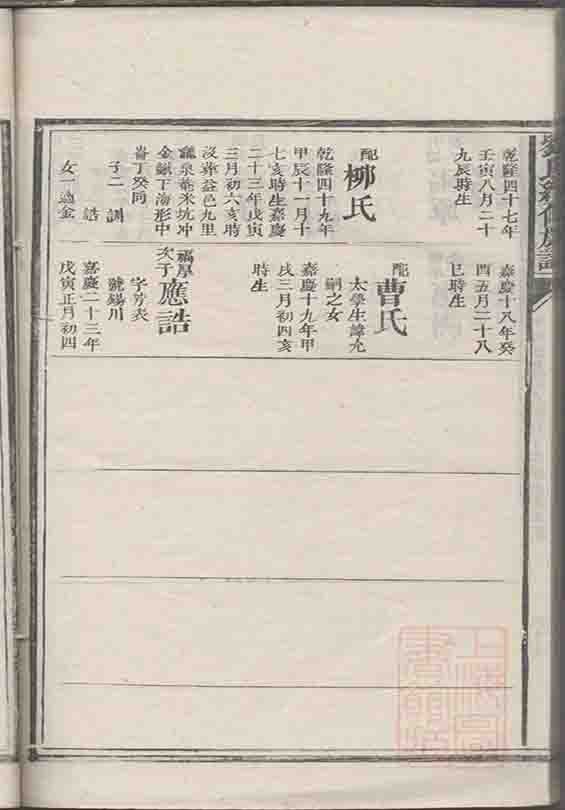 乾隆四十七年
壬寅八月二十
九辰時生
配
柳氏
乾隆四十九年
甲辰十一月十
七亥時生嘉慶
二十三年戊寅
三月初六亥時
沒葬益邑九里
龍泉菴木坑冲
金鍁下海形中
崙丁癸同
子二 訓
誥
女一適金
嘉慶十八年癸
酉五月二十八
巳時生
配
曹氏
太學生諱允
嗣之女
嘉慶十九年甲
戌三月初四亥
時生
福厚
次子
應誥
字芳表
號錫川
嘉慶二十三年
戊寅正月初四